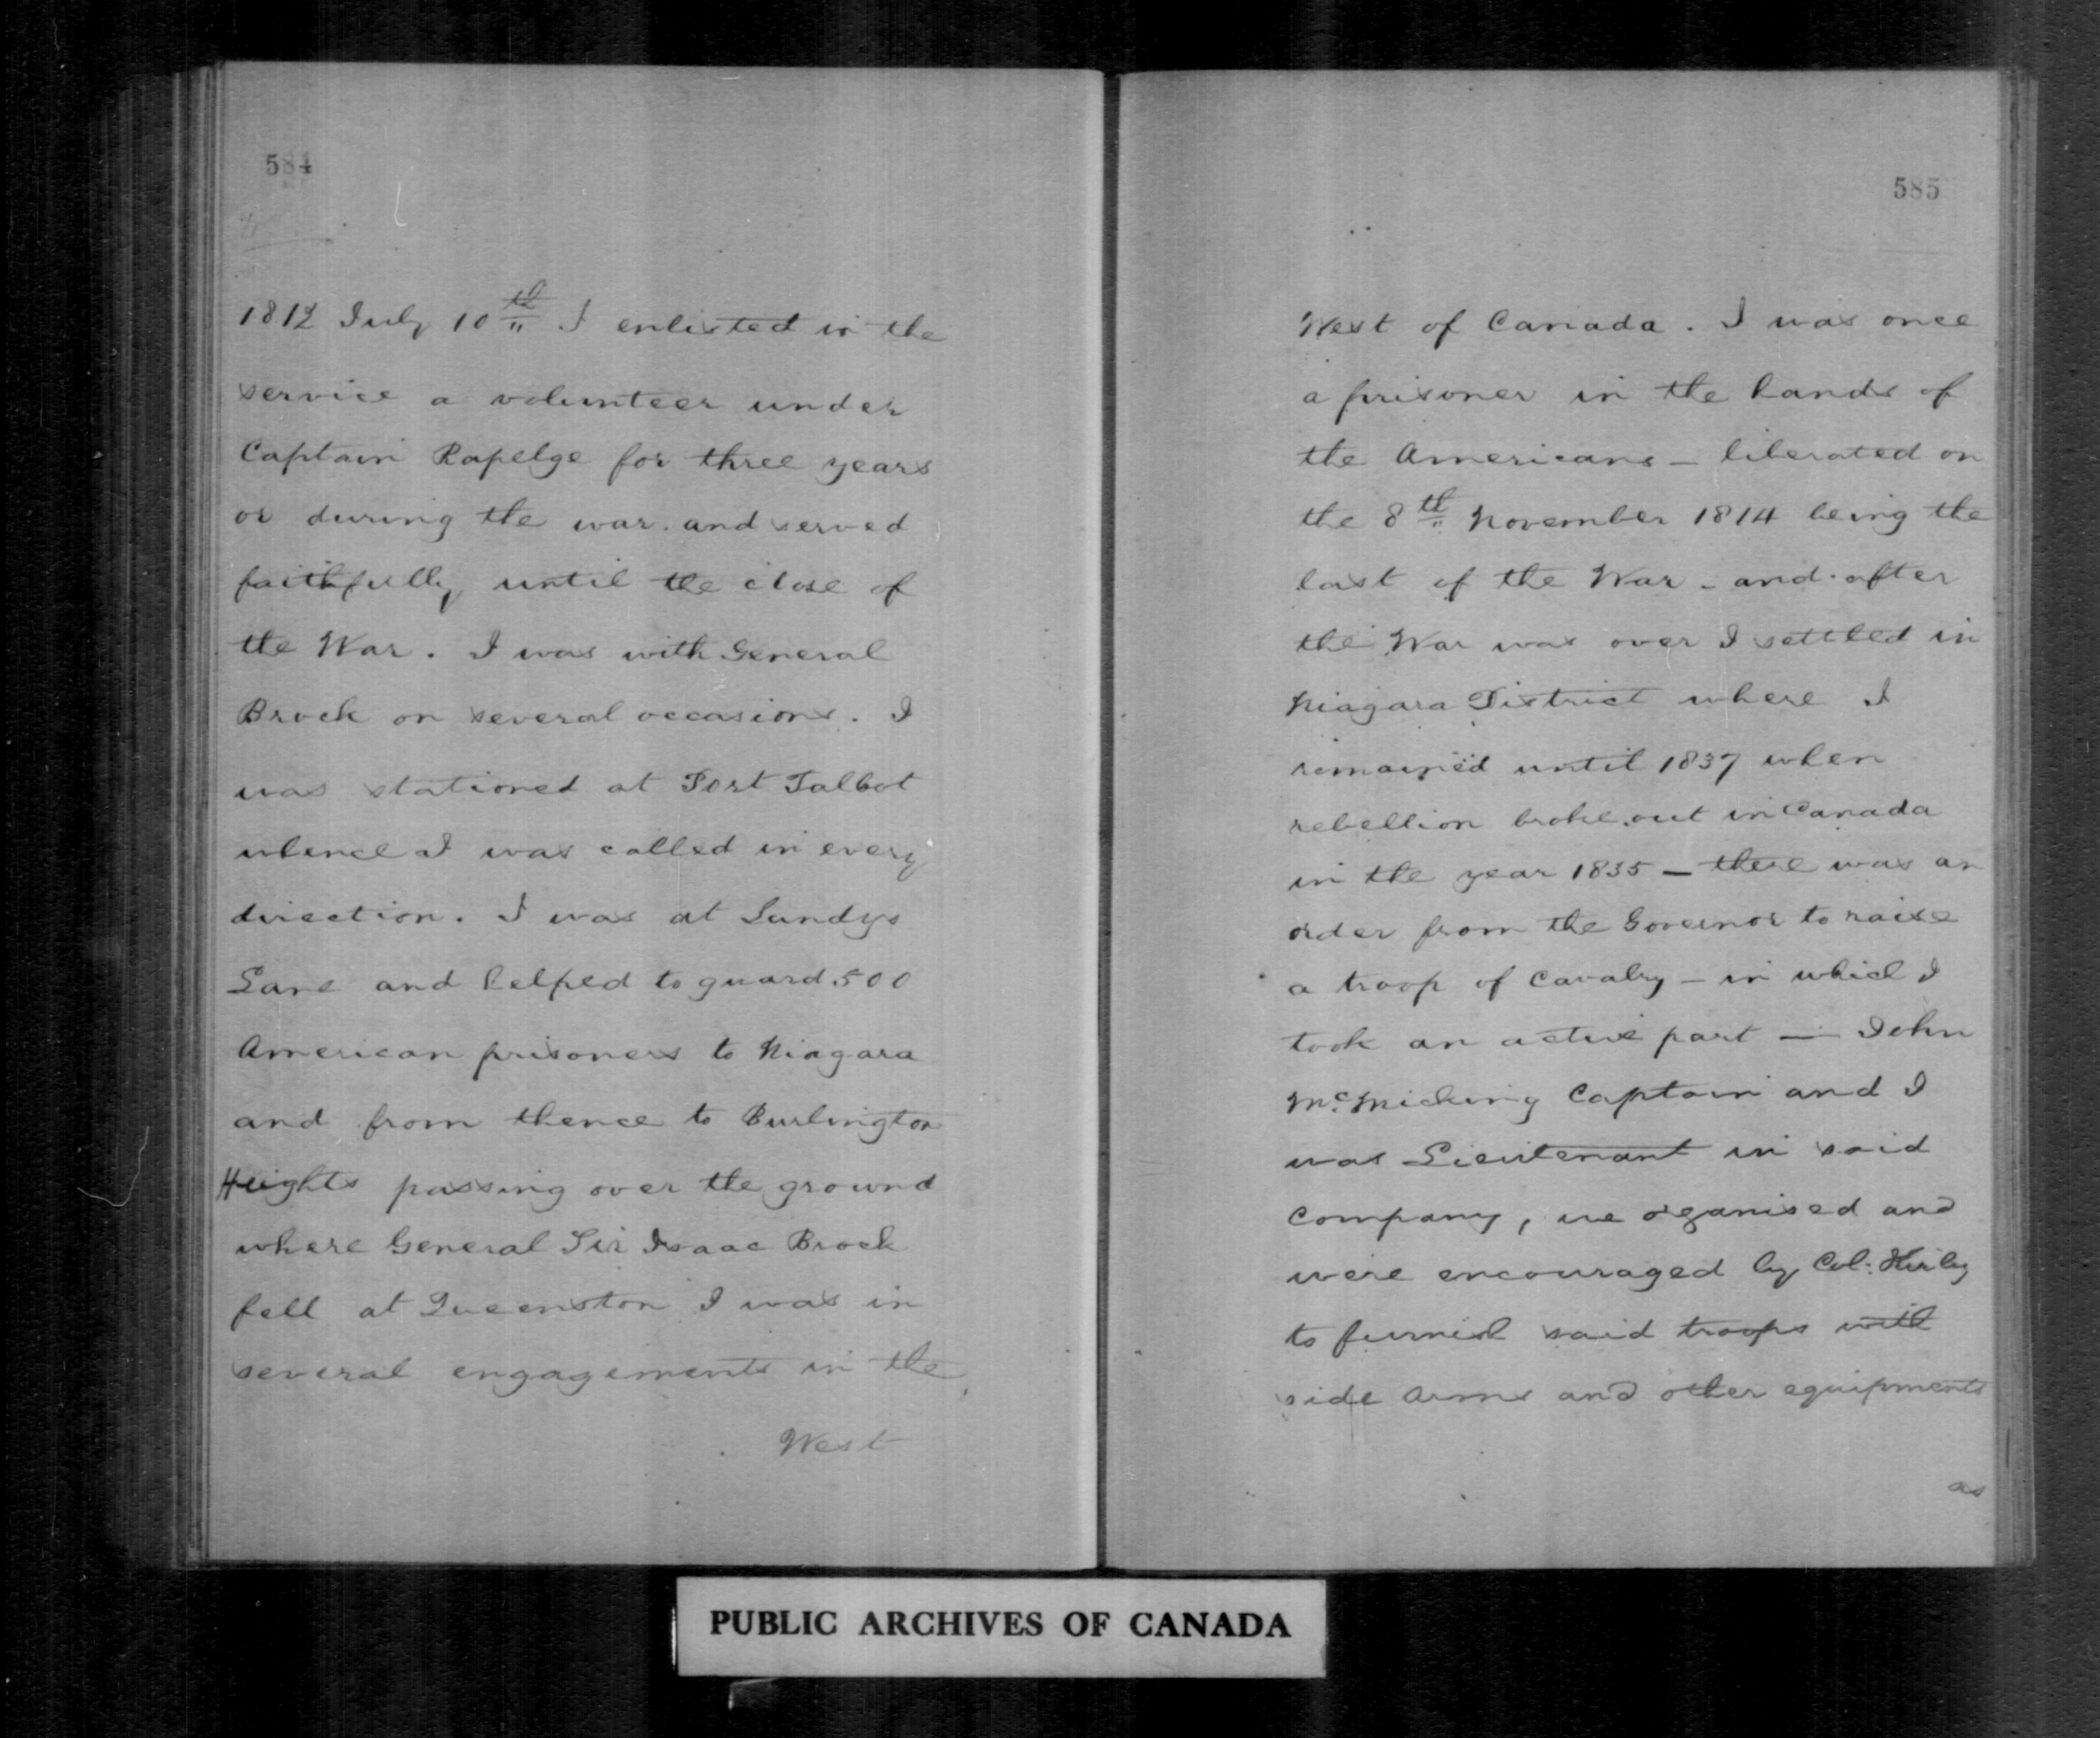 584
1812 July 10th I enlisted in the
service a volunteer under
Captain Rapelge for three years
or during the war. and served
faithfully until the close of
the War. I was with General
Brock on several occasions. I
was stationed at Port Talbot
whence I was called in every
direction. I was at Lundys
Lane and helped to guard 500
American prisoners to Niagara
and from thence to Burlington
Heights passing over the ground
where General Sir Isaac Brock
fell at Queenston I was in
several engagements in the
West
585
West of Canada. I was once
a prisoner in the hands of
the Americans – liberated on
the 8th November 1814 being the
last of the War – and after
the War was over I settled in
Niagara District where I
remained until 1837 when
rebellion broke out in Canada
in the year 1835 – there was an
order from the Governor to raise
a troop of Cavalry – in which I
took an active part — John
McMicking Captain and I
was Lieutenant in said
Company, we organised and
were encouraged by Col:
to furnish said troops with
side arms and other equipments
as
PUBLIC ARCHIVES OF CANADA